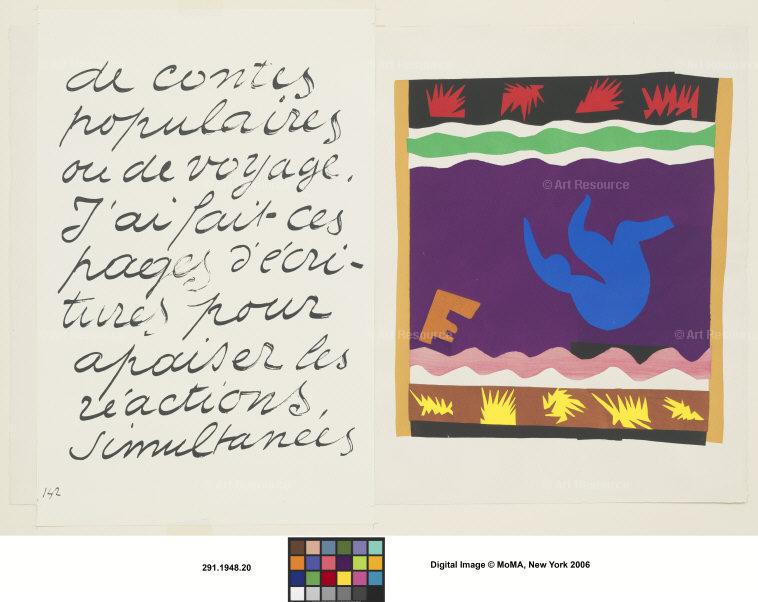 de contes
populaires
ou de voyage.
J'ai fait ces
pages d'écri-
tures pour
apaiser les
réactions,
simultanées
142
© Art Resource
© Art Resource
© Art Resource
© Art Resource
© Art Resource
© Art Resource
© Art Resource
E
291.1948.20
Digital Image © MoMA, New York 2006